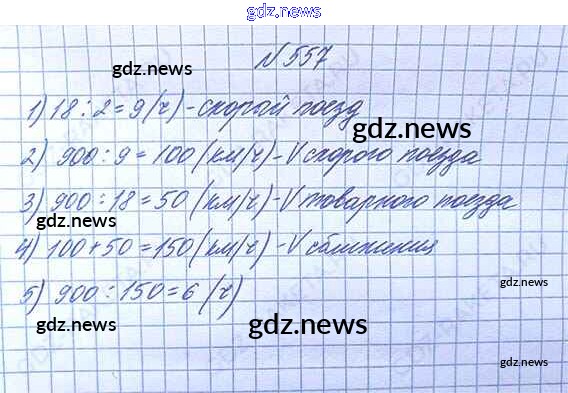 gdz.news
№557
gdz.news
1) 18 : 2 = 9 (ч) - скорый поезд
gdz.news
2) 900 : 9 = 100 (км/ч) - V скорого поезда
3) 900 : 18 = 50 (км/ч) - V товарного поезда
gdz.news
4) 100 + 50 = 150 (км/ч) - V сближения
gdz.news
5) 900 : 150 = 6 (ч)
gdz.news
gdz.news
gdz.news